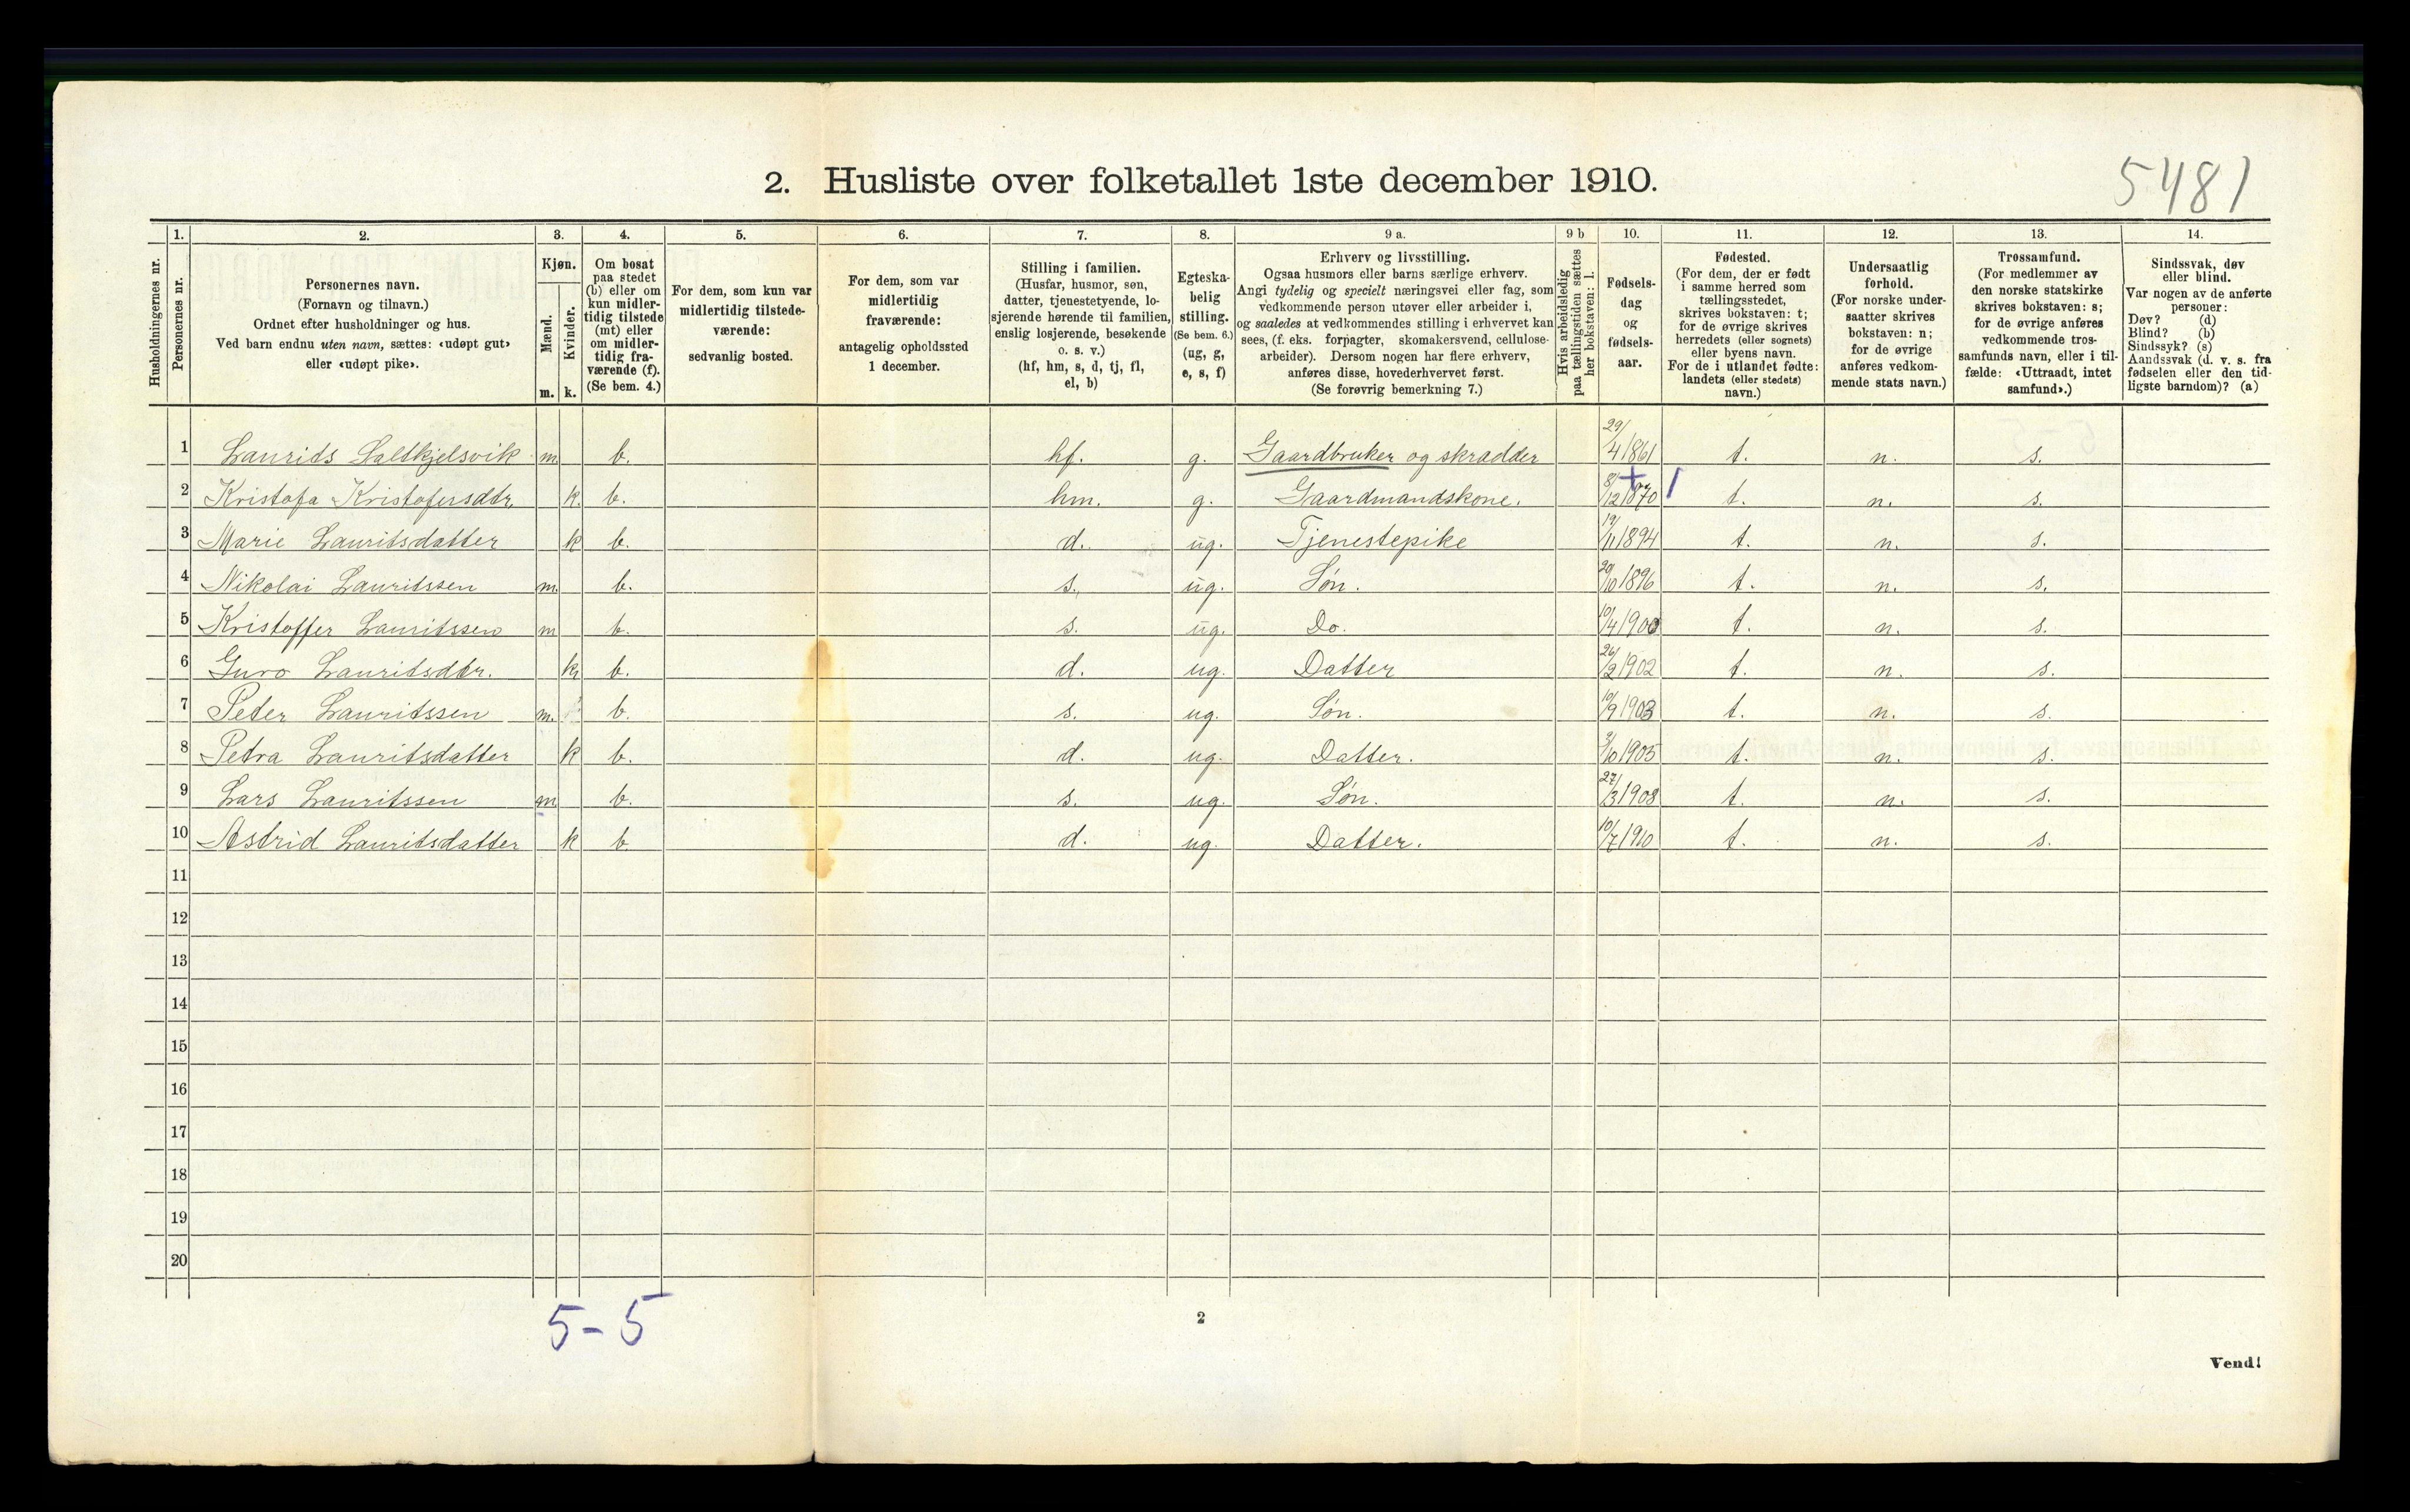 2. Husliste over folketallet 1ste december 1910.
5481
Husholdningernes nr.
1. Personernes nr.
2. Personernes navn. (Fornavn og tilnavn.) Ordnet efter husholdninger og hus. Ved barn endnu uten navn, sættes: «udøpt gut» eller «udøpt pike».
3. Kjøn. Mænd. m. Kvinder. k.
4. Om bosat paa stedet (b) eller om kun midlertidig tilstede (mt) eller om midlertidig fraværende (f). (Se bem. 4.)
5. For dem, som kun var midlertidig tilstedeværende: sedvanlig bosted.
6. For dem, som var midlertidig fraværende: antagelig opholdssted 1 december.
7. Stilling i familien. (Husfar, husmor, søn, datter, tjenestetyende, losjerende hørende til familien, enslig losjerende, besøkende o. s. v.) (hf, hm, s, d, tj, fl, el, b)
8. Egteskabelig stilling. (Se bem. 6.) (ug, g, e, s, f)
9 a. Erhverv og livsstilling. Ogsaa husmors eller barns særlige erhverv. Angi tydelig og specielt næringsvei eller fag, som vedkommende person utøver eller arbeider i, og saaledes at vedkommendes stilling i erhvervet kan sees, (f. eks. forpagter, skomakersvend, cellulosearbeider). Dersom nogen har flere erhverv, anføres disse, hovederhvervet først. (Se forøvrig bemerkning 7.)
9 b Hvis arbeidsledig paa tællingstiden sættes her bokstaven: l.
10. Fødselsdag og fødselsaar.
11. Fødested. (For dem, der er født i samme herred som tællingsstedet, skrives bokstaven: t; for de øvrige skrives herredets (eller sognets) eller byens navn. For de i utlandet fødte: landets (eller stedets) navn.)
12. Undersaatlig forhold. (For norske undersaatter skrives bokstaven: n; for de øvrige anføres vedkommende stats navn.)
13. Trossamfund. (For medlemmer av den norske statskirke skrives bokstaven: s; for de øvrige anføres vedkommende trossamfunds navn, eller i tilfælde: «Uttraadt, intet samfund».)
14. Sindssvak, døv eller blind. Var nogen av de anførte personer: Døv? (d) Blind? (b) Sindssyk? (s) Aandssvak (d. v. s. fra fødselen eller den tidligste barndom)? (a)
1 Laurids Saltkjelsvik m. b. hf. g. Gaardbruker og skrædder 29/4 1861 t. n. s.
2 Kristofa Kristofersdtr. k. b. hm. g. Gaardmandskone. 8/12 1870 t. n. s.
3 Marie Lauritsdatter k b. d. ug. Tjenestepike 19/11 1894 t. n. s.
4 Nikolai Lauritssen m. b. s. ug. Søn. 20/10 1896 t. n. s.
5 Kristoffer Lauritssen m b. s. ug. Do. 10/4 1900 t. n. s.
6 Guro Lauritsdtr. k b. d. ug. Datter 26/2 1902 t. n. s.
7 Peter Lauritssen m. b. s. ug. Søn. 10/9 1903 t. n. s.
8 Petra Lauritsdatter k b. d. ug. Datter. 3/10 1905 t. n. s.
9 Lars Lauritssen m b. s. ug. Søn. 27/3 1908 t. n. s.
10 Astrid Lauritsdatter k b. d. ug. Datter. 10/7 1910 t. n. s.
11
12
13
14
15
16
17
18
19
20
5-5
2
Vend!